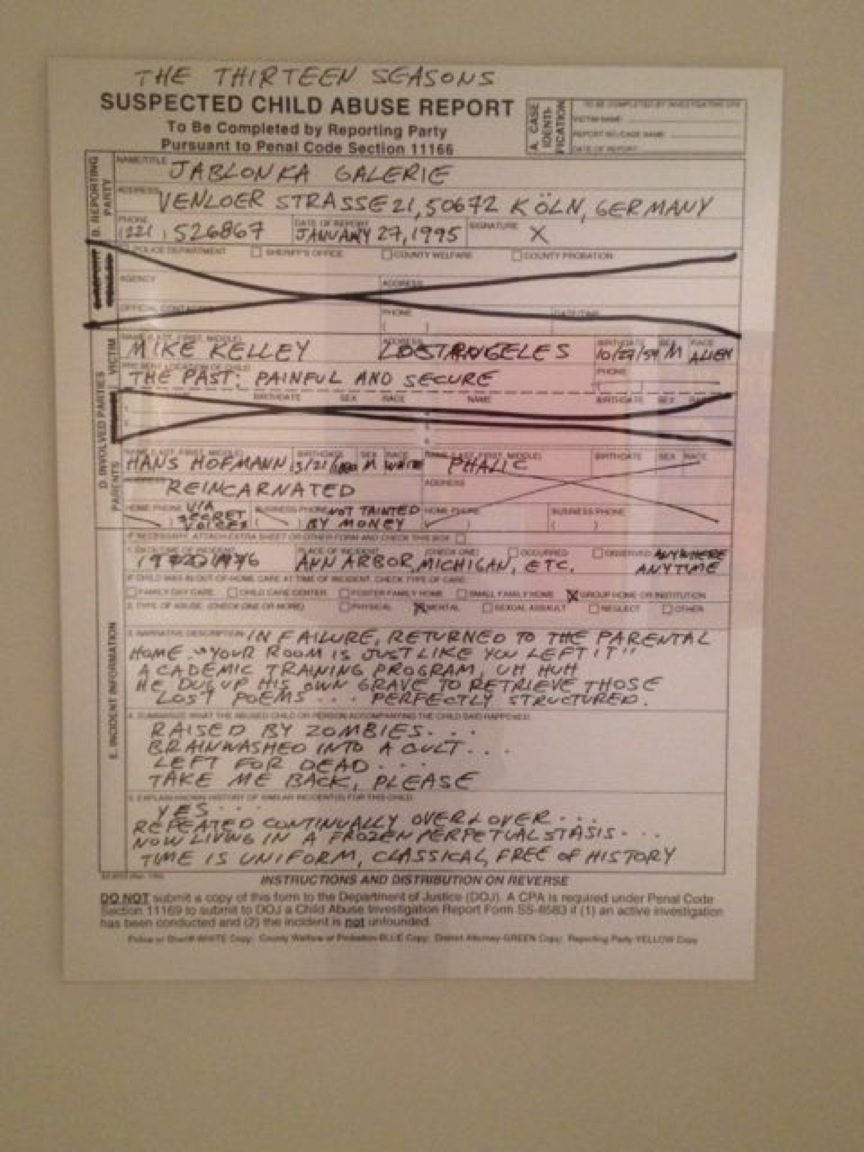 THE THIRTEEN SEASONS
SUSPECTED CHILD ABUSE REPORT
To Be Completed by Reporting Party
Pursuant to Penal Code Section 11166
A. CASE IDENTI-FICATION
TO BE COMPLETED BY INVESTIGATING CPA
VICTIM NAME:
REPORT NO/CASE NAME:
DATE OF REPORT:
B. REPORTING PARTY
NAME/TITLE JABLONKA GALERIE
ADDRESS VENLOER STRASSE 21, 50672 KÖLN, GERMANY
PHONE (221) 526867 DATE OF REPORT JANUARY 27, 1995 SIGNATURE X
POLICE DEPARTMENT SHERIFF'S OFFICE COUNTY WELFARE COUNTY PROBATION
AGENCY ADDRESS
OFFICIAL CONTACTED PHONE ( ) DATE/TIME
D. INVOLVED PARTIES
VICTIM
NAME (LAST, FIRST, MIDDLE) ADDRESS BIRTHDATE SEX RACE
MIKE KELLEY LOST ANGELES 10/27/54 M ALIEN
PRESENT LOCATION OF CHILD PHONE
THE PAST: PAINFUL AND SECURE
BIRTHDATE SEX RACE NAME BIRTHDATE SEX RACE
PARENTS
NAME (LAST, FIRST, MIDDLE) BIRTHDATE SEX RACE NAME (LAST, FIRST, MIDDLE) BIRTHDATE SEX RACE
HANS HOFMANN 3/21/1880 M WHITE PHALIC
ADDRESS REINCARNATED ADDRESS
HOME PHONE VIA SECRET VOICES BUSINESS PHONE NOT TAINTED BY MONEY HOME PHONE BUSINESS PHONE
IF NECESSARY, ATTACH EXTRA SHEET OR OTHER FORM AND CHECK THIS BOX.
E. INCIDENT INFORMATION
1. DATE/TIME OF INCIDENT PLACE OF INCIDENT (CHECK ONE) OCCURRED OBSERVED
1976 ANN ARBOR, MICHIGAN, ETC. ANYWHERE ANYTIME
IF CHILD WAS IN OUT-OF-HOME CARE AT TIME OF INCIDENT, CHECK TYPE OF CARE:
FAMILY DAY CARE CHILD CARE CENTER FOSTER FAMILY HOME SMALL FAMILY HOME X GROUP HOME OR INSTITUTION
2. TYPE OF ABUSE: (CHECK ONE OR MORE) PHYSICAL X MENTAL SEXUAL ASSAULT NEGLECT OTHER
3. NARRATIVE DESCRIPTION: IN FAILURE, RETURNED TO THE PARENTAL
HOME - "YOUR ROOM IS JUST LIKE YOU LEFT IT"
ACADEMIC TRAINING PROGRAM, UH HUH
HE DUG UP HIS OWN GRAVE TO RETRIEVE THOSE
LOST POEMS... PERFECTLY STRUCTURED.
4. SUMMARIZE WHAT THE ABUSED CHILD OR PERSON ACCOMPANYING THE CHILD SAID HAPPENED:
RAISED BY ZOMBIES...
BRAINWASHED INTO A CULT...
LEFT FOR DEAD...
TAKE ME BACK, PLEASE
5. EXPLAIN KNOWN HISTORY OF SIMILAR INCIDENT(S) FOR THIS CHILD:
YES...
REPEATED CONTINUALLY OVER & OVER...
NOW LIVING IN A FROZEN PERPETUAL STASIS...
TIME IS UNIFORM, CLASSICAL, FREE OF HISTORY
INSTRUCTIONS AND DISTRIBUTION ON REVERSE
DO NOT submit a copy of this form to the Department of Justice (DOJ). A CPA is required under Penal Code
Section 11169 to submit to DOJ a Child Abuse Investigation Report Form SS-8583 if (1) an active investigation
has been conducted and (2) the incident is not unfounded.
Police or Sheriff-WHITE Copy; County Welfare or Probation-BLUE Copy; District Attorney-GREEN Copy; Reporting Party-YELLOW Copy